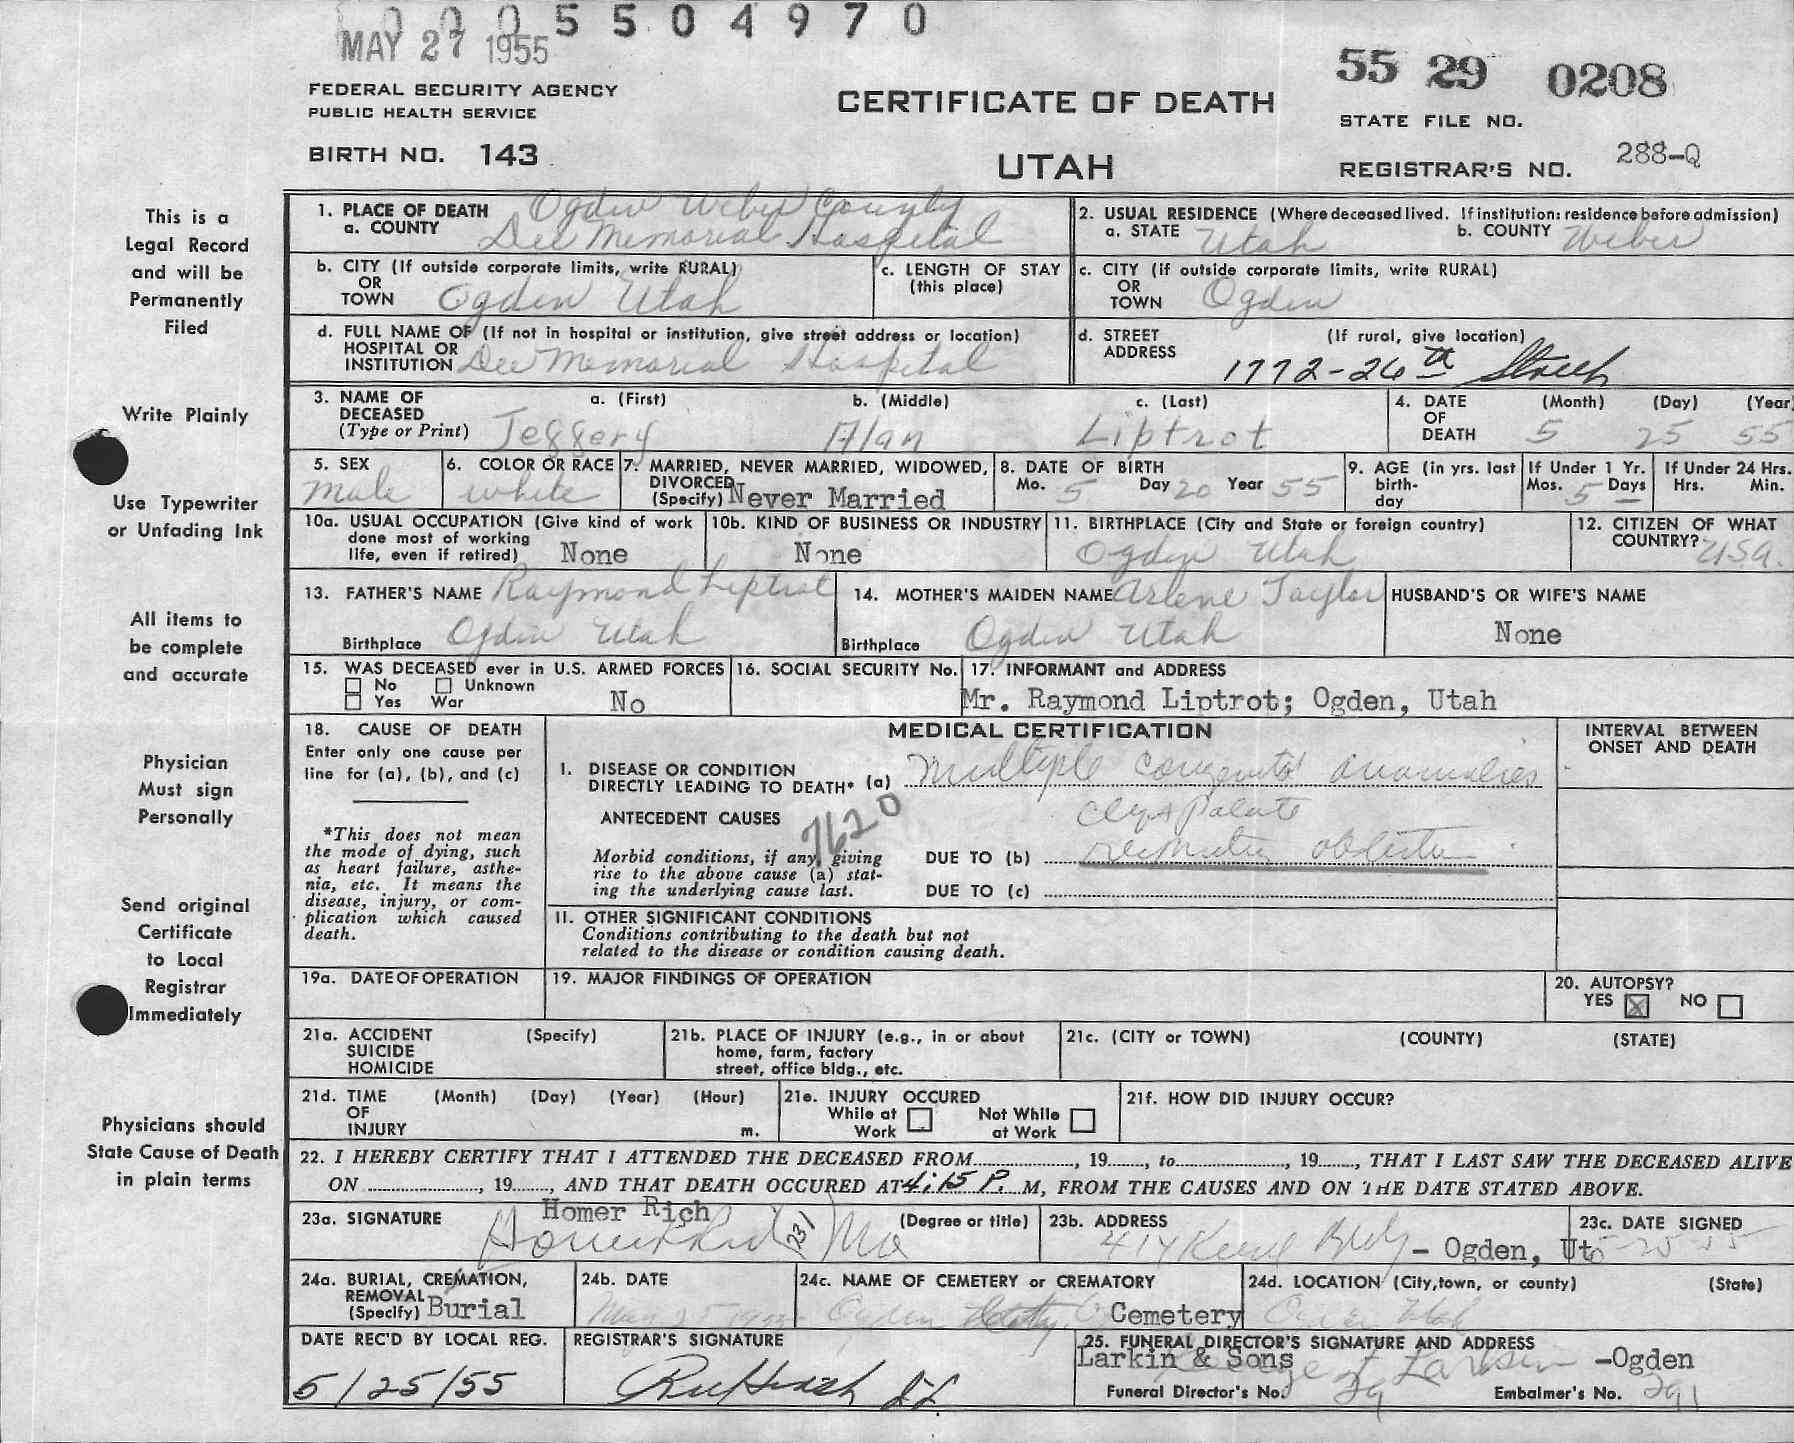 0005504970
MAY 27 1955
55 29 0208
FEDERAL SECURITY AGENCY
PUBLIC HEALTH SERVICE
CERTIFICATE OF DEATH
STATE FILE NO.
BIRTH NO. 143
UTAH
REGISTRAR'S NO. 288-Q
This is a
Legal Record
and will be
Permanently
Filed
Write Plainly
Use Typewriter
or Unfading Ink
All items to
be complete
and accurate
Physician
Must sign
Personally
Send original
Certificate
to Local
Registrar
Immediately
Physicians should
State Cause of Death
in plain terms
1. PLACE OF DEATH Ogden Weber County
a. COUNTY Dee Memorial Hospital
2. USUAL RESIDENCE (Where deceased lived. If institution: residence before admission)
a. STATE Utah b. COUNTY Weber
b. CITY (If outside corporate limits, write RURAL)
OR
TOWN Ogden Utah
c. LENGTH OF STAY
(this place)
c. CITY (If outside corporate limits, write RURAL)
OR
TOWN Ogden
d. FULL NAME OF (If not in hospital or institution, give street address or location)
HOSPITAL OR
INSTITUTION Dee Memorial Hospital
d. STREET (If rural, give location)
ADDRESS 1772-26th Street
3. NAME OF a. (First) b. (Middle) c. (Last)
DECEASED
(Type or Print) Jeggery Alan Liptrot
4. DATE (Month) (Day) (Year
OF
DEATH 5 25 55
5. SEX
male
6. COLOR OR RACE
white
7. MARRIED, NEVER MARRIED, WIDOWED,
DIVORCED
(Specify) Never Married
8. DATE OF BIRTH
Mo. 5 Day 20 Year 55
9. AGE (in yrs. last
birth-
day
If Under 1 Yr.
Mos. 5 Days –
If Under 24 Hrs.
Hrs. Min.
10a. USUAL OCCUPATION (Give kind of work
done most of working
life, even if retired) None
10b. KIND OF BUSINESS OR INDUSTRY
None
11. BIRTHPLACE (City and State or foreign country)
Ogden Utah
12. CITIZEN OF WHAT
COUNTRY? USA.
13. FATHER'S NAME Raymond Liptrot
Birthplace Ogden Utah
14. MOTHER'S MAIDEN NAME Arlene Taylor
Birthplace Ogden Utah
HUSBAND'S OR WIFE'S NAME
None
15. WAS DECEASED ever in U.S. ARMED FORCES
No Unknown
Yes War No
16. SOCIAL SECURITY No.
17. INFORMANT and ADDRESS
Mr. Raymond Liptrot; Ogden, Utah
18. CAUSE OF DEATH
Enter only one cause per
line for (a), (b), and (c)
*This does not mean
the mode of dying, such
as heart failure, asthe-
nia, etc. It means the
disease, injury, or com-
plication which caused
death.
MEDICAL CERTIFICATION
I. DISEASE OR CONDITION
DIRECTLY LEADING TO DEATH* (a) Multiple congenital anomalies
ANTECEDENT CAUSES 7620 palate
Morbid conditions, if any, giving
rise to the above cause (a) stat-
ing the underlying cause last.
DUE TO (b)
DUE TO (c)
II. OTHER SIGNIFICANT CONDITIONS
Conditions contributing to the death but not
related to the disease or condition causing death.
INTERVAL BETWEEN
ONSET AND DEATH
19a. DATE OF OPERATION
19. MAJOR FINDINGS OF OPERATION
20. AUTOPSY?
YES X NO
21a. ACCIDENT (Specify)
SUICIDE
HOMICIDE
21b. PLACE OF INJURY (e.g., in or about
home, farm, factory
street, office bldg., etc.
21c. (CITY or TOWN) (COUNTY) (STATE)
21d. TIME (Month) (Day) (Year) (Hour)
OF
INJURY m.
21e. INJURY OCCURED
While at Work Not While at Work
21f. HOW DID INJURY OCCUR?
22. I HEREBY CERTIFY THAT I ATTENDED THE DECEASED FROM........, 19......, to........, 19......, THAT I LAST SAW THE DECEASED ALIVE
ON ........, 19......, AND THAT DEATH OCCURED AT 4:15 P. M, FROM THE CAUSES AND ON THE DATE STATED ABOVE.
23a. SIGNATURE Homer Rich (Degree or title)
Homer Rich 231 MD
23b. ADDRESS
414 Kiesel Bldg - Ogden, Ut
23c. DATE SIGNED
5-25-55
24a. BURIAL, CREMATION,
REMOVAL
(Specify) Burial
24b. DATE
May 25 1955
24c. NAME OF CEMETERY or CREMATORY
Ogden City Cemetery
24d. LOCATION (City, town, or county) (State)
Ogden Utah
DATE REC'D BY LOCAL REG.
5/25/55
REGISTRAR'S SIGNATURE
25. FUNERAL DIRECTOR'S SIGNATURE AND ADDRESS
Larkin & Sons Larkin -Ogden
Funeral Director's No. 29 Embalmer's No. 291